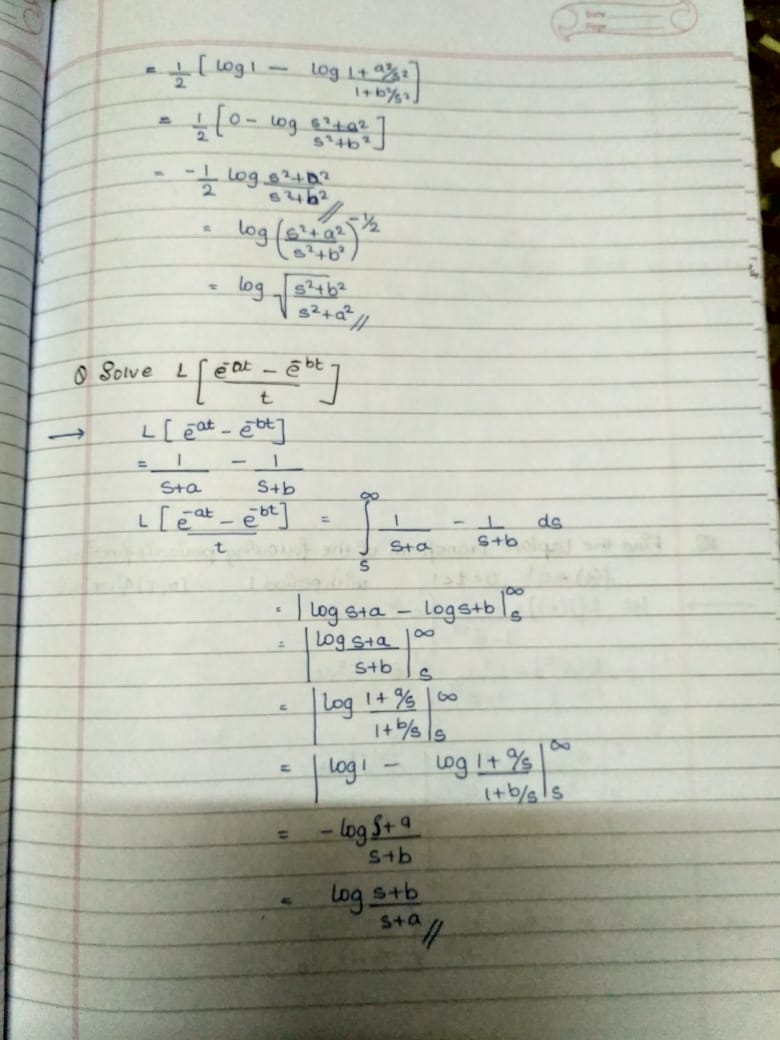 Date
Page
= 1/2 [ log 1 - log (1 + a²/s²)/(1 + b²/s²) ]
= 1/2 [ 0 - log (s²+a²)/(s²+b²) ]
= -1/2 log (s²+a²)/(s²+b²) //
= log ((s²+a²)/(s²+b²))^(-1/2)
= log √((s²+b²)/(s²+a²)) //
Q Solve L [ (e^-at - e^-bt)/t ]
→ L [ e^-at - e^-bt ]
= 1/(s+a) - 1/(s+b)
L [ (e^-at - e^-bt)/t ] = ∫_s^∞ 1/(s+a) - 1/(s+b) ds
= | log s+a - log s+b |_s^∞
= | log (s+a)/(s+b) |_s^∞
= | log (1 + a/s)/(1 + b/s) |_s^∞
= | log 1 - log (1 + a/s)/(1 + b/s) |_s^∞
= - log (s+a)/(s+b)
= log (s+b)/(s+a) //